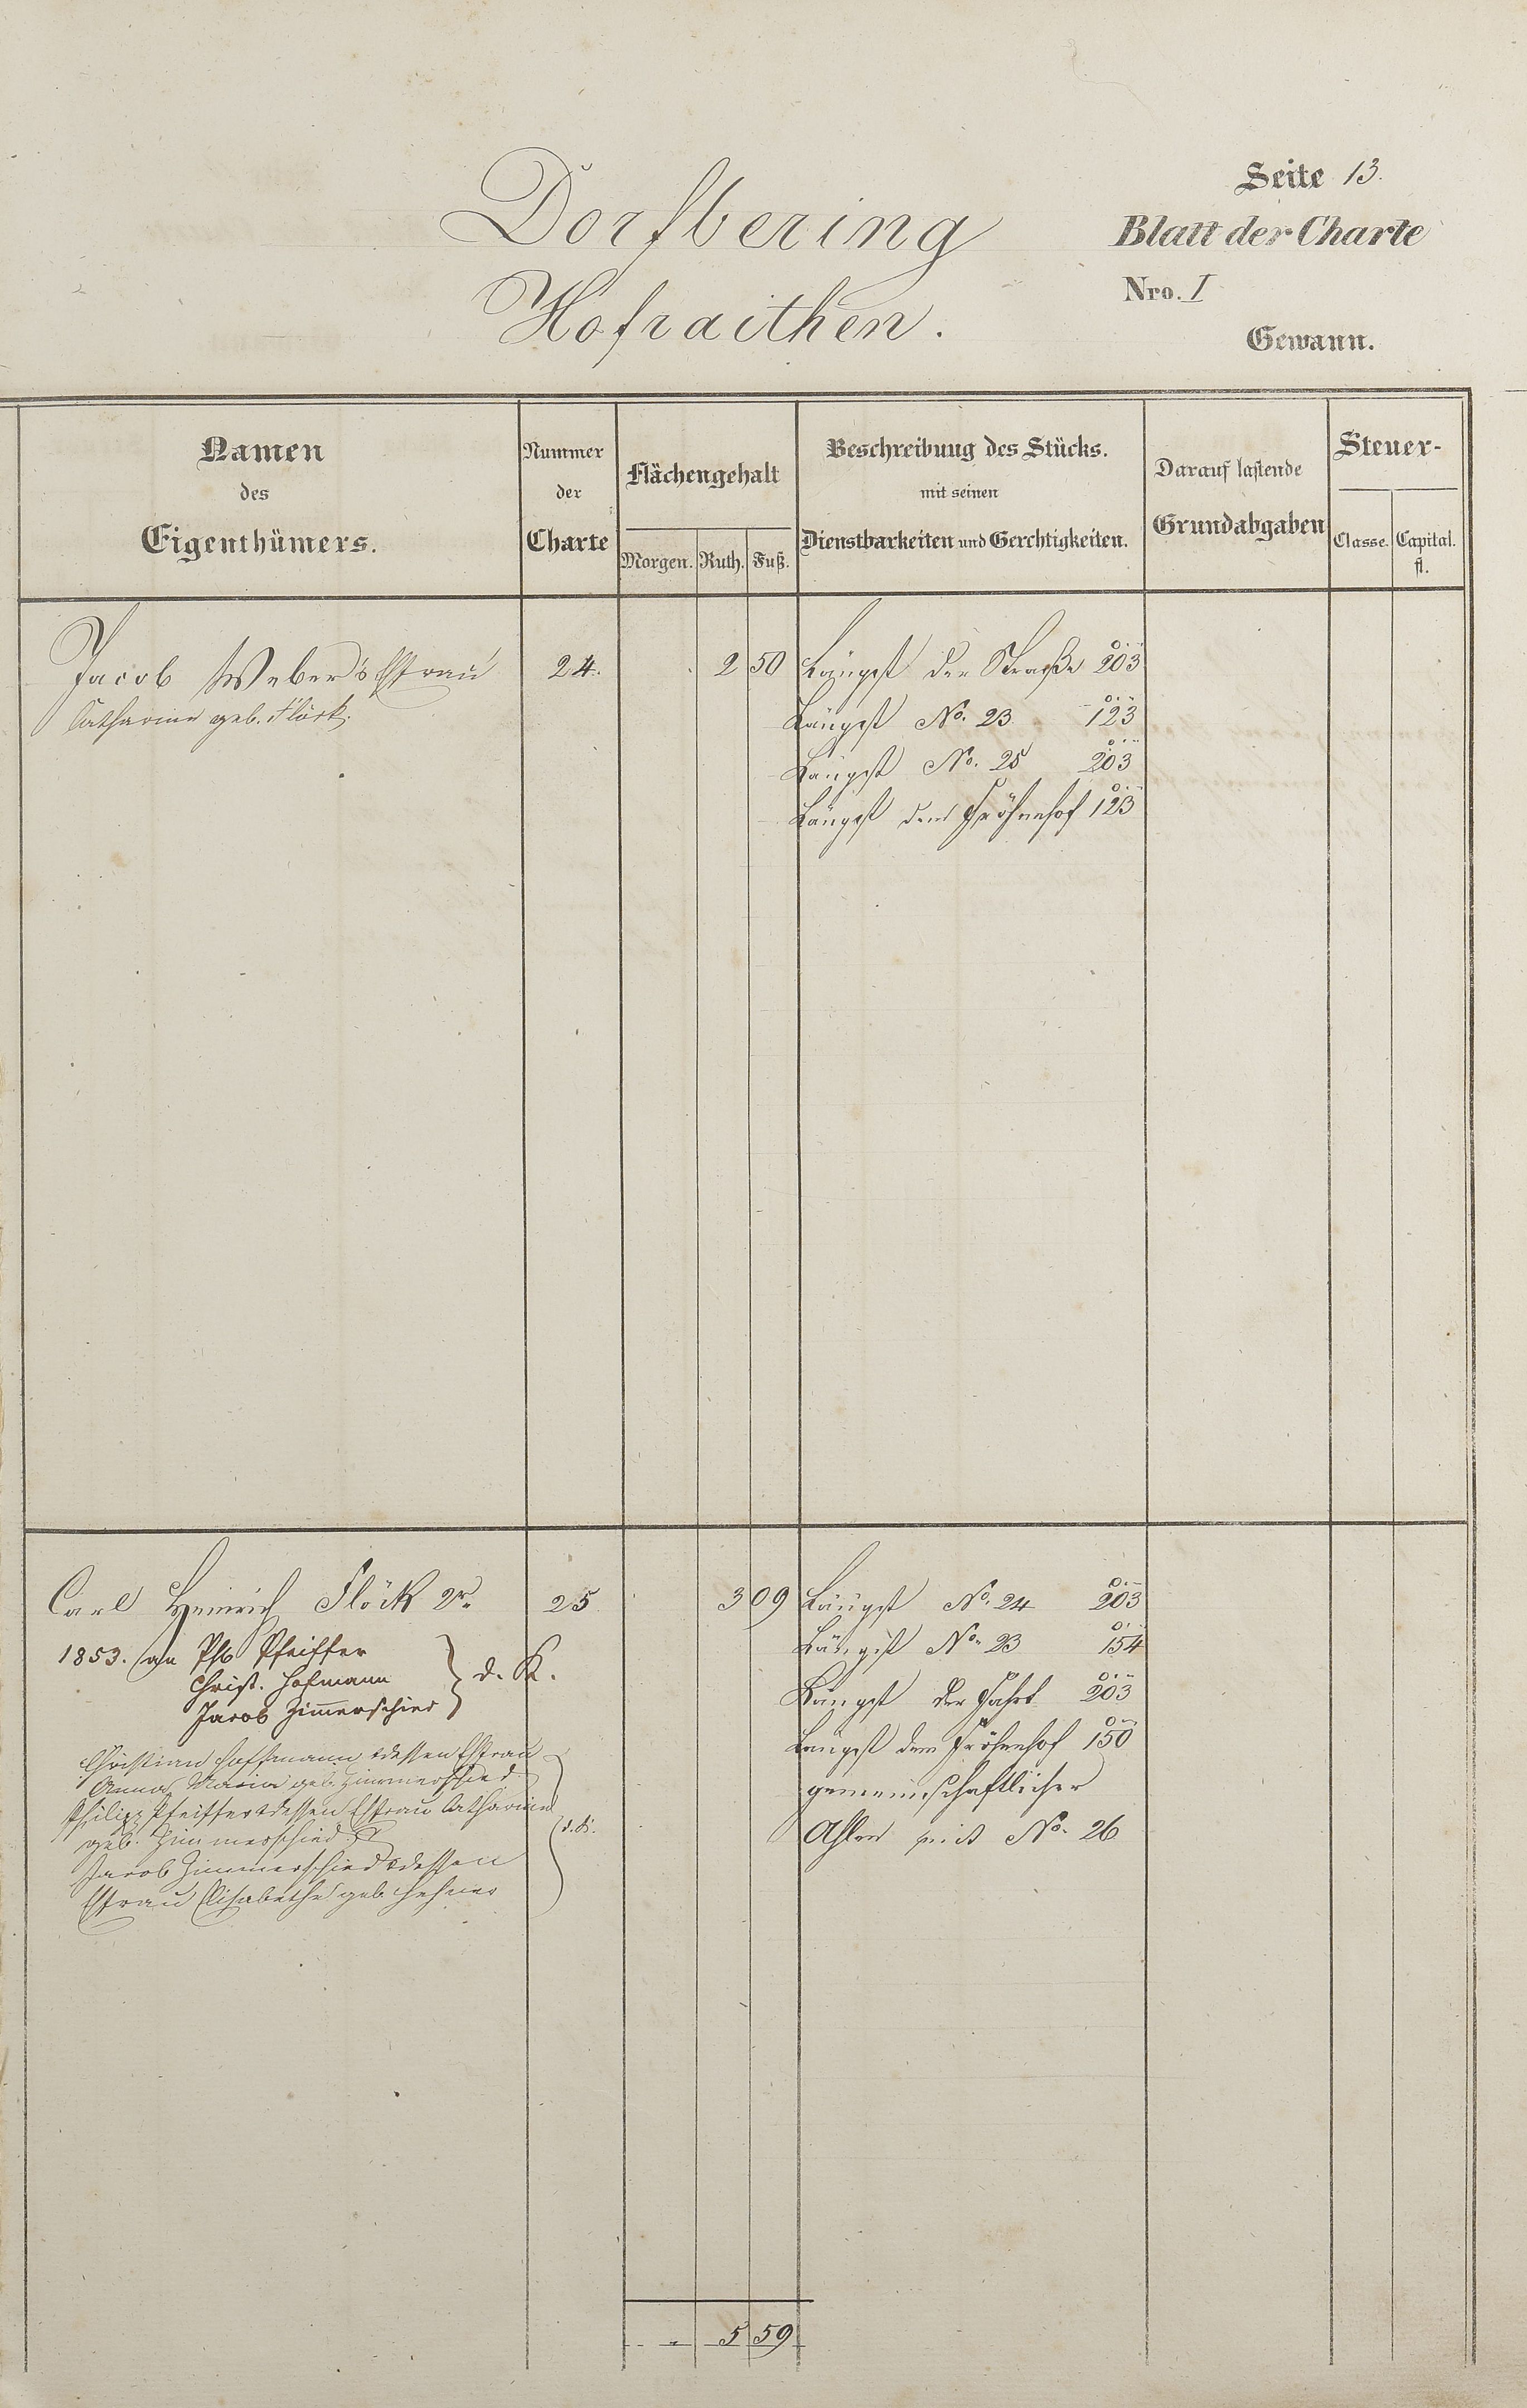 Seite 13.
Dorfbering
Blatt der Charte
Hofraithen.
Nro. I
Gewann.
Namen
des
Eigenthümers.
Nummer
der
Charte
Flächengehalt
Morgen. Ruth. Fuß.
Beschreibung des Stücks.
mit seinen
Dienstbarkeiten und Gerchtigkeiten.
Darauf lastende
Grundabgaben
Steuer-
Classe. Capital.
fl.
Jacob Weber's Efrau 24. 2 50 Längst der Straße 203
Catharine geb. Flöck. Längst No. 23 123
Längst No. 25 203
Längst dem Fröhnhof 123
Carl Heinrich Flöck 2r. 25 3 09 Längst No. 24 203
1853. an Phb Pfeiffer Längst No. 23 154
Christ. Hofmann d. K.
Jacob Zimmerschied Längst der Fahrt 203
Christian Hoffmann & dessen Efrau Längst dem Fröhnhof 150
Anna Maria geb. Zimmerschied gemeinschaftlicher
Philipp Pfeiffer & dessen Efrau Catharine d. K.
geb. Zimmerschied Ahlen mit No. 26
Jacob Zimmerschied & dessen
Efrau Elisabethe geb. Hehner
5 59